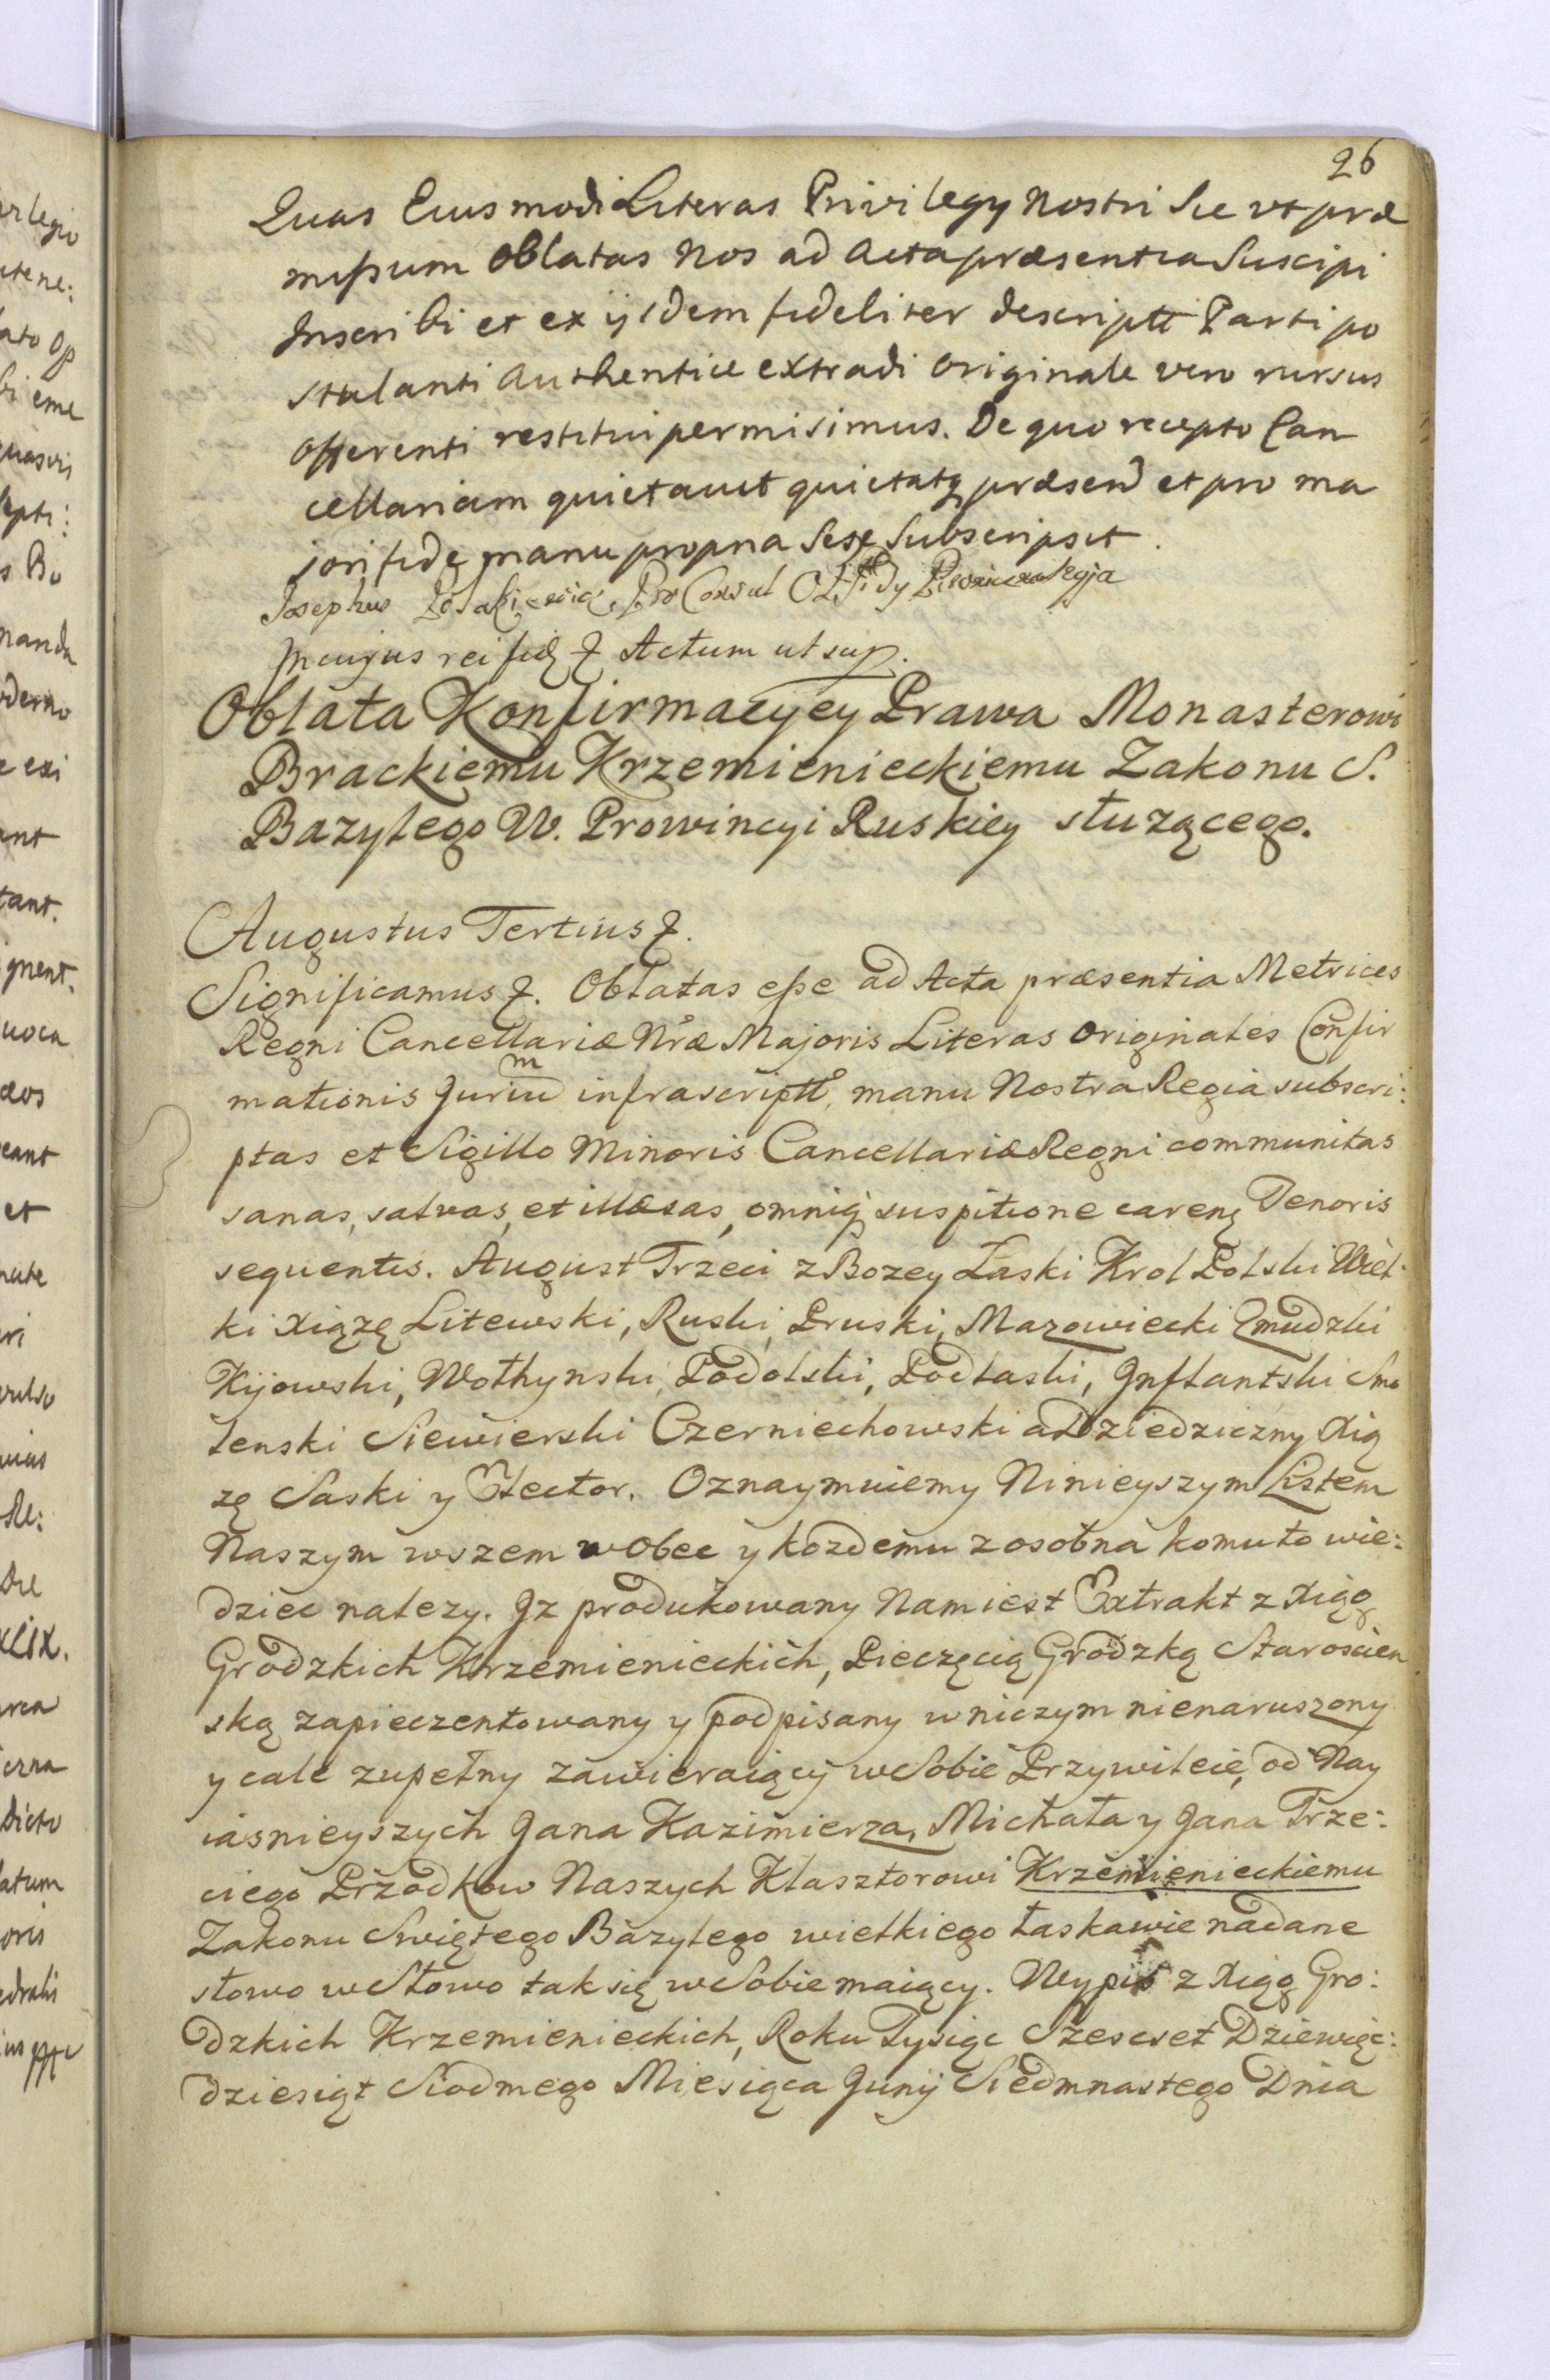 26
Quas Eiusmodi Literas Privilegy Nostri Sic ut præ
missum Oblatas Nos ad Acta præsentia Suscipi
Inscribi et ex ijsdem fideliter descriptt Parti po
stulanti Authentice extradi Originale vero rursus
Offerenti restitui permisimus. De quo recepto Can
cellariam quietavit quietatq præsend et pro ma
jori fide manu propria Sese Subscripsit.
Josephus Pro Consul
In cujus rei fidę Actum ut sup.
Oblata Konfirmacyey Prawa Monasterowi
Brackiemu Krzemienieckiemu Zakonu S.
Bazylego W. Prowincyi Ruskiey służącego.
Augustus Tertius
Significamus Oblatas esse ad Acta præsentia Metrices
Regni Cancellariæ Nræ Majoris Literas Originales Confir
mationis Jurium infrascriptt, manu Nostra Regia subscri:
ptas et Sigillo Minoris Cancellariæ Regni communitas
sanas, salvas, et illæsas, omniq suspitione careną Tenoris
sequentis. August Trzeci z Bozey Łaski Krol Polski Wiel:
ki Xiążę Litewski, Ruski, Pruski, Mazowiecki Zmudzki
Kijowski, Wołhynski, Podolski, Podlaski, Jnflantski Smo
lenski Siewierski Czerniechowski a Dziedziczny Xią
zę Saski y Elector. Oznaymuiemy Ninieyszym Listem
Naszym wszem wobec y kozdemu zosobna komu to wie:
dziec nalezy. Jz produkowany Nam iest Extrakt z Xiąg
Grodzkich Krzemienieckich, Pieczęcią Grodzką Staroscien
ską zapieczentowany y podpisany w niczym nienaruszony
y cale zupełny zawieraiący w Sobie Przywileie, od Nay
iasnieyszych Jana Kazimierza, Michała y Jana Trze:
ciego Przodkow Naszych Klasztorowi Krzemienieckiemu
Zakonu Swiętego Bazylego wielkiego łaskawie nadane
słowo w Słowo tak się w Sobie maiący. Wypis z Xiąg Gro:
dzkich Krzemienieckich, Roku Tysiąc Szescset Dziewięc:
dziesiąt Siodmego Miesiąca Junij Siedmnastego Dnia